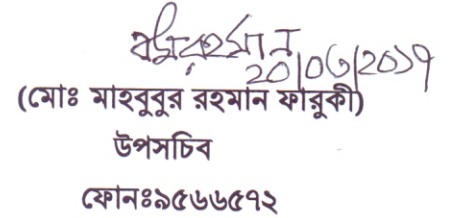 ২০/০৬/২০১৭
(মোঃ মাহবুবুর রহমান ফারুকী)
উপসচিব
ফোনঃ৯৫৬৬৫৭২